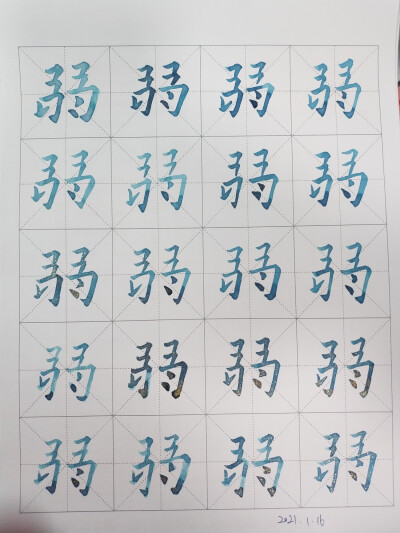 弱弱弱弱
弱弱弱弱
弱弱弱弱
弱弱弱弱
弱弱弱弱
2021.1.16